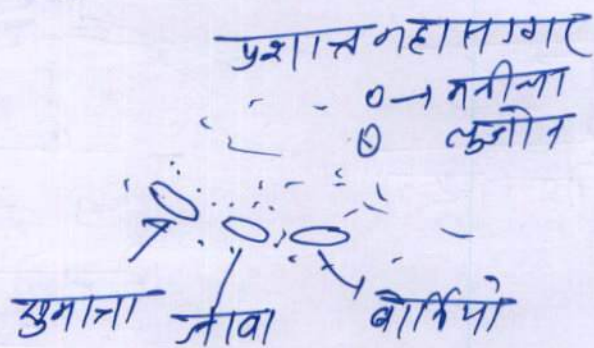 प्रशान्त महासागर
मनीला
लुजोन
सुमात्रा जावा बोर्नियो